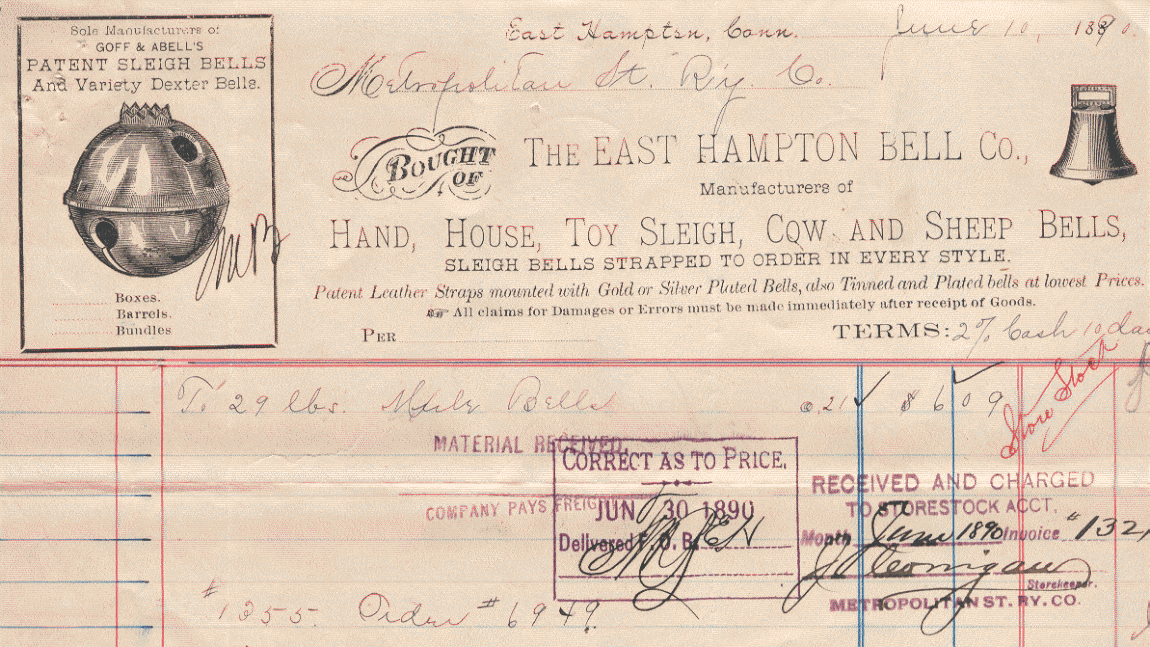 Sole Manufacturers of
GOFF & ABELL'S
PATENT SLEIGH BELLS
And Variety Dexter Bells.
Boxes.
Barrels.
Bundles
East Hampton, Conn. June 10, 1890.
Metropolitan St. R'y. Co.
BOUGHT OF
THE EAST HAMPTON BELL CO.,
Manufacturers of
HAND, HOUSE, TOY SLEIGH, COW AND SHEEP BELLS,
SLEIGH BELLS STRAPPED TO ORDER IN EVERY STYLE.
Patent Leather Straps mounted with Gold or Silver Plated Bells, also Tinned and Plated bells at lowest Prices.
All claims for Damages or Errors must be made immediately after receipt of Goods.
PER
TERMS: 2% Cash 10 da
To 29 lbs. Mule Bells .21 8 6 09
Store Stock
MATERIAL RECEIVED,
CORRECT AS TO PRICE.
COMPANY PAYS FREIGHT
JUN 30 1890
Delivered F.O.B.
RECEIVED AND CHARGED
TO STORESTOCK ACCT.
Month June 1890 Invoice #132
Storekeeper.
METROPOLITAN ST. RY. CO.
#1255. Order #6949.